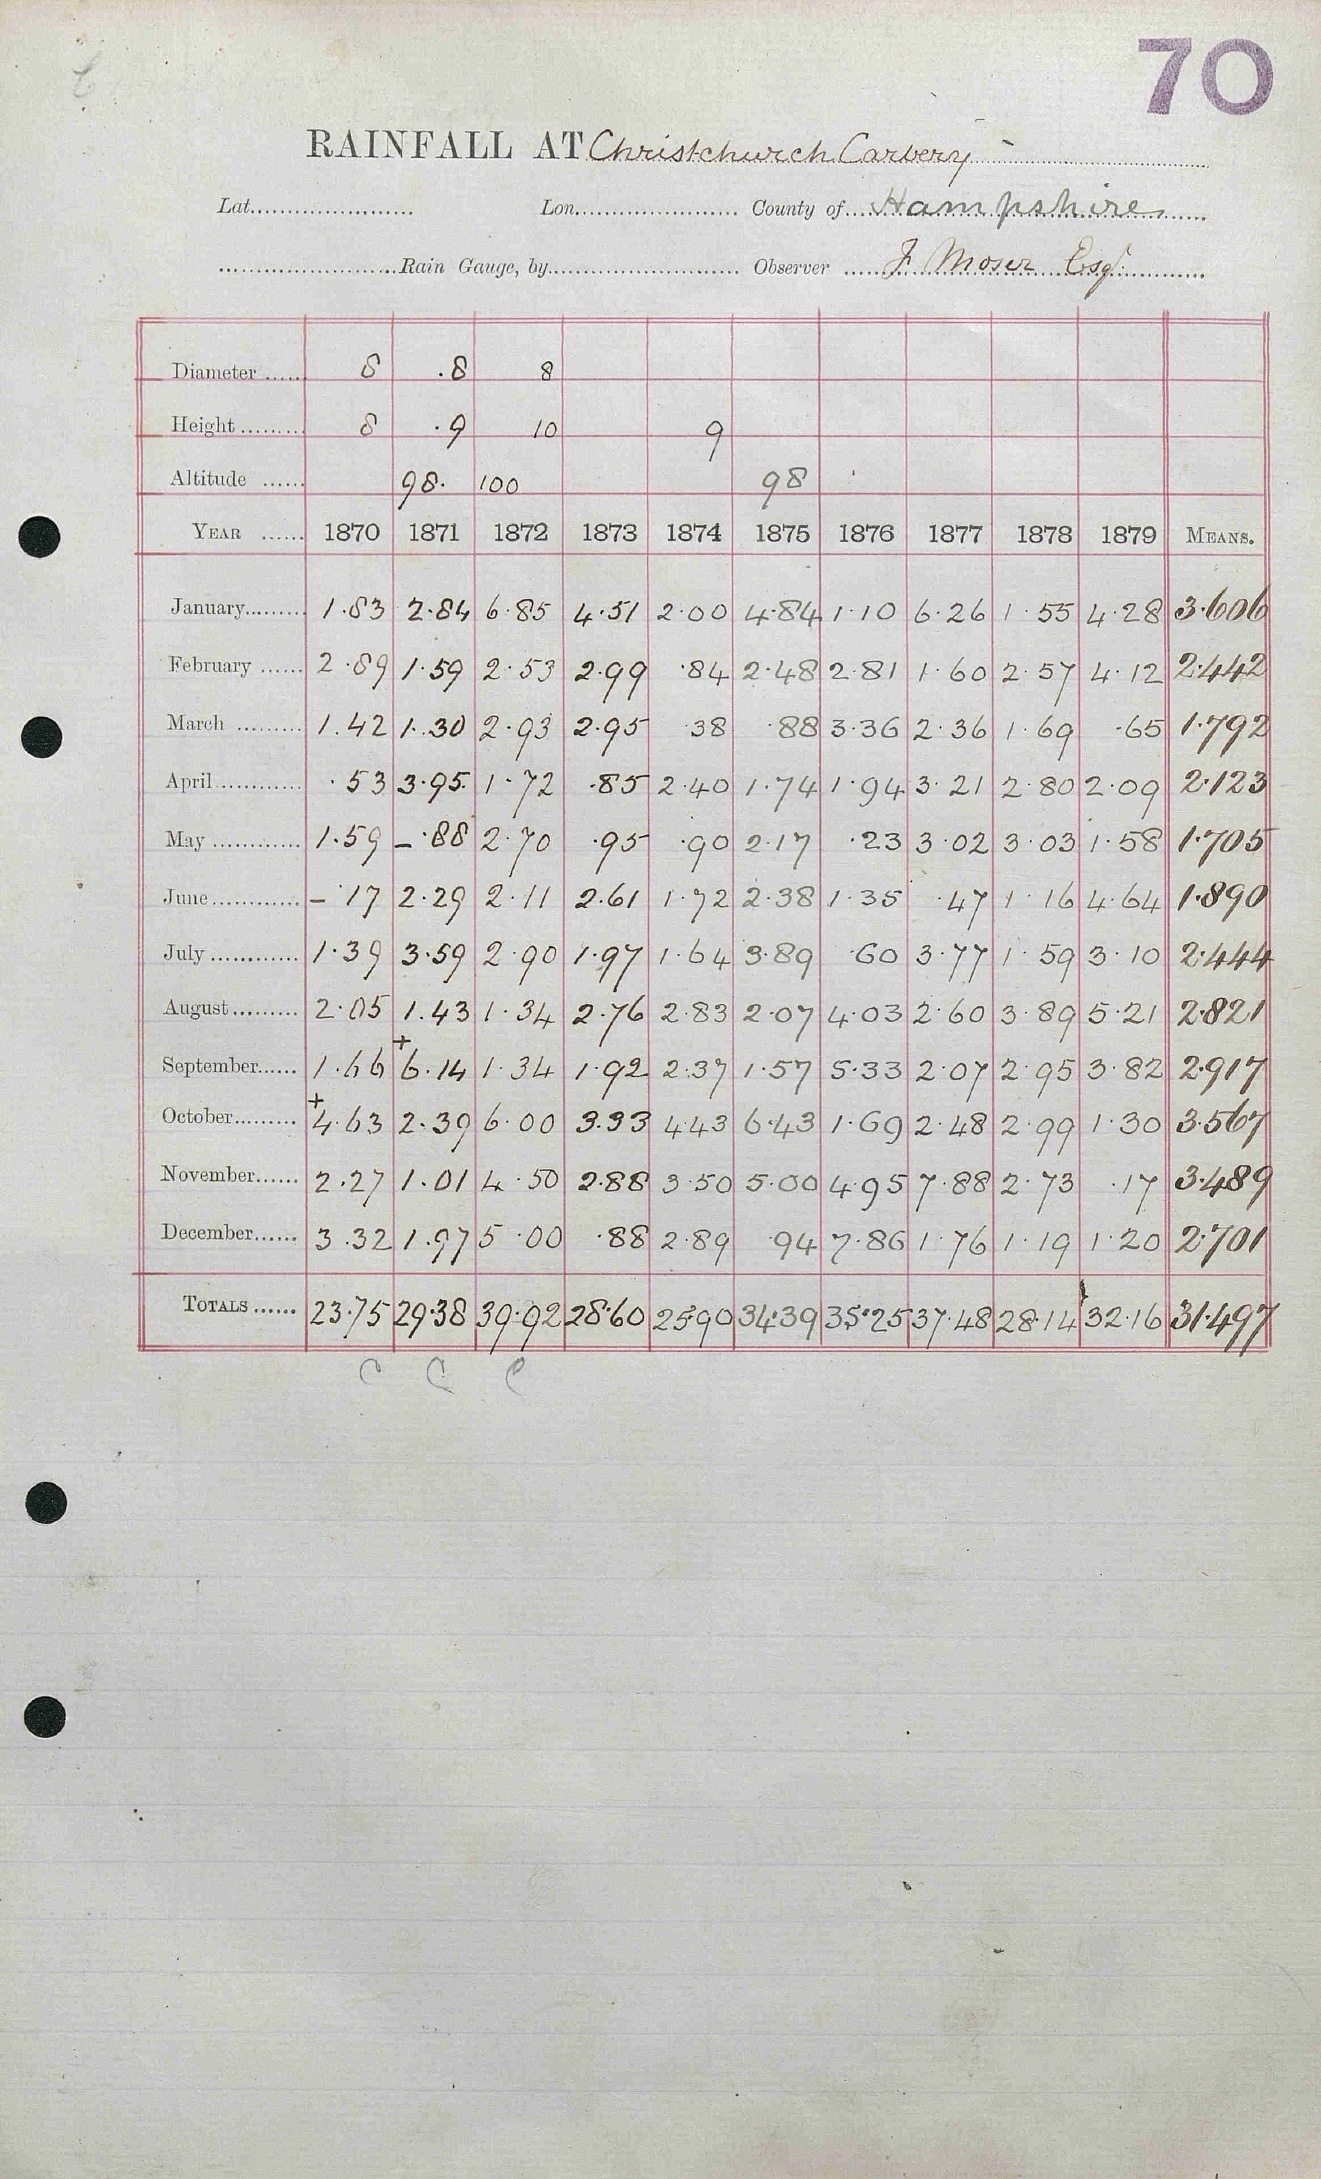 70
RAINFALL AT Christchurch Carbery
Lat. Lon. County of Hampshire
Rain Gauge, by Observer J Moser Esqr.
Diameter 8 .8 8
Height 8 .9 10 9
Altitude 98. 100 98
YEAR 1870 1871 1872 1873 1874 1875 1876 1877 1878 1879 MEANS.
January 1.83 2.84 6.85 4.51 2.00 4.84 1.10 6.26 1.55 4.28 3.606
February 2.89 1.59 2.53 2.99 .84 2.48 2.81 1.60 2.57 4.12 2.442
March 1.42 1.30 2.93 2.95 .38 .88 3.36 2.36 1.69 .65 1.792
April .53 3.95 1.72 .85 2.40 1.74 1.94 3.21 2.80 2.09 2.123
May 1.59 – .88 2.70 .95 .90 2.17 .23 3.02 3.03 1.58 1.705
June – .17 2.29 2.11 2.61 1.72 2.38 1.35 .47 1.16 4.64 1.890
July 1.39 3.59 2.90 1.97 1.64 3.89 .60 3.77 1.59 3.10 2.444
August 2.05 1.43 1.34 2.76 2.83 2.07 4.03 2.60 3.89 5.21 2.821
September 1.66 + 6.14 1.34 1.92 2.37 1.57 5.33 2.07 2.95 3.82 2.917
October + 4.63 2.39 6.00 3.33 4.43 6.43 1.69 2.48 2.99 1.30 3.567
November 2.27 1.01 4.50 2.88 3.50 5.00 4.95 7.88 2.73 .17 3.489
December 3.32 1.97 5.00 .88 2.89 .94 7.86 1.76 1.19 1.20 2.701
TOTALS 23.75 29.38 39.92 28.60 25.90 34.39 35.25 37.48 28.14 32.16 31.497
C C C